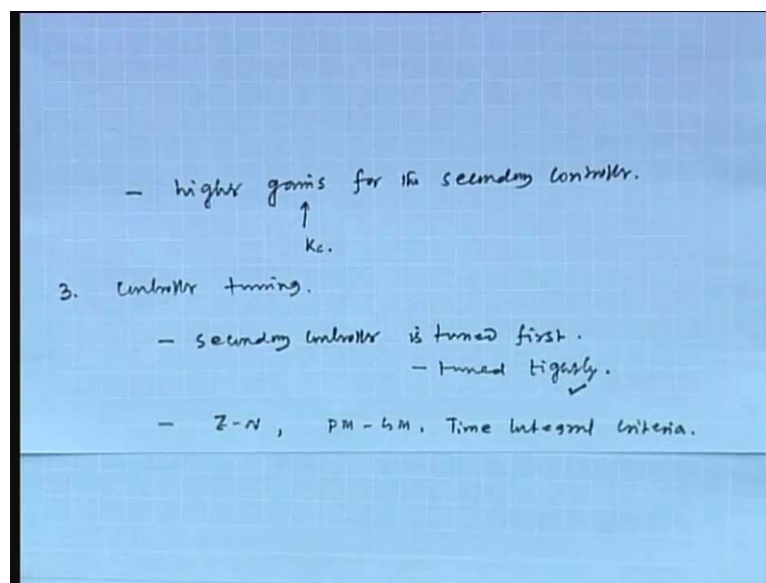 - higher gains for the secondary controller.
↑
Kc.
3. Controller tuning.
- secondary controller is tuned first.
- tuned tightly. ✓
- Z-N, PM-GM, Time Integral Criteria.